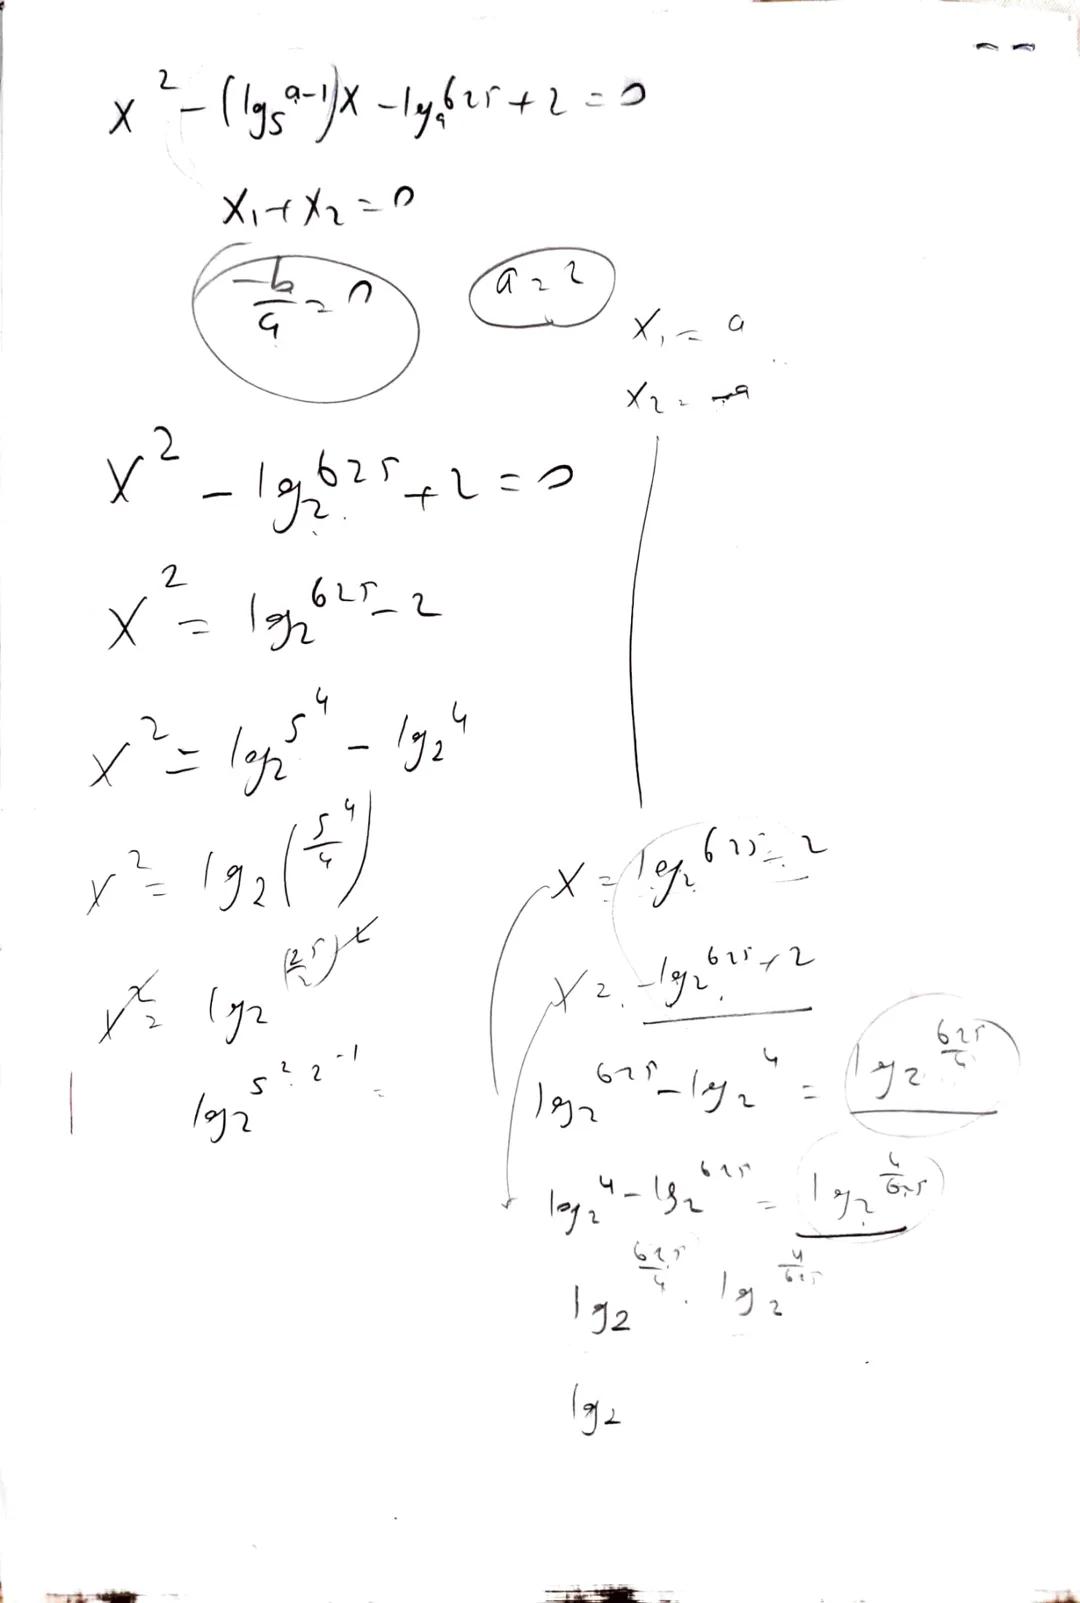 x² - (log₅^(a-1))x - log_a^625 + 2 = 0
x₁ + x₂ = 0
-b/a = 0
a = 2
x₁ = a
x₂ = -a
x² - log₂^625 + 2 = 0
x² = log₂^625 - 2
x² = log₂^5⁴ - log₂^4
x² = log₂(5⁴/4)
x² = log₂^(25/2)²
log₂^5²·2⁻¹ =
x = log₂^625 - 2
x = -log₂^625 + 2
log₂^625 - log₂^4 = log₂^625/4
log₂^4 - log₂^625 = log₂^4/625
log₂^625/4 · log₂^4/625
log₂